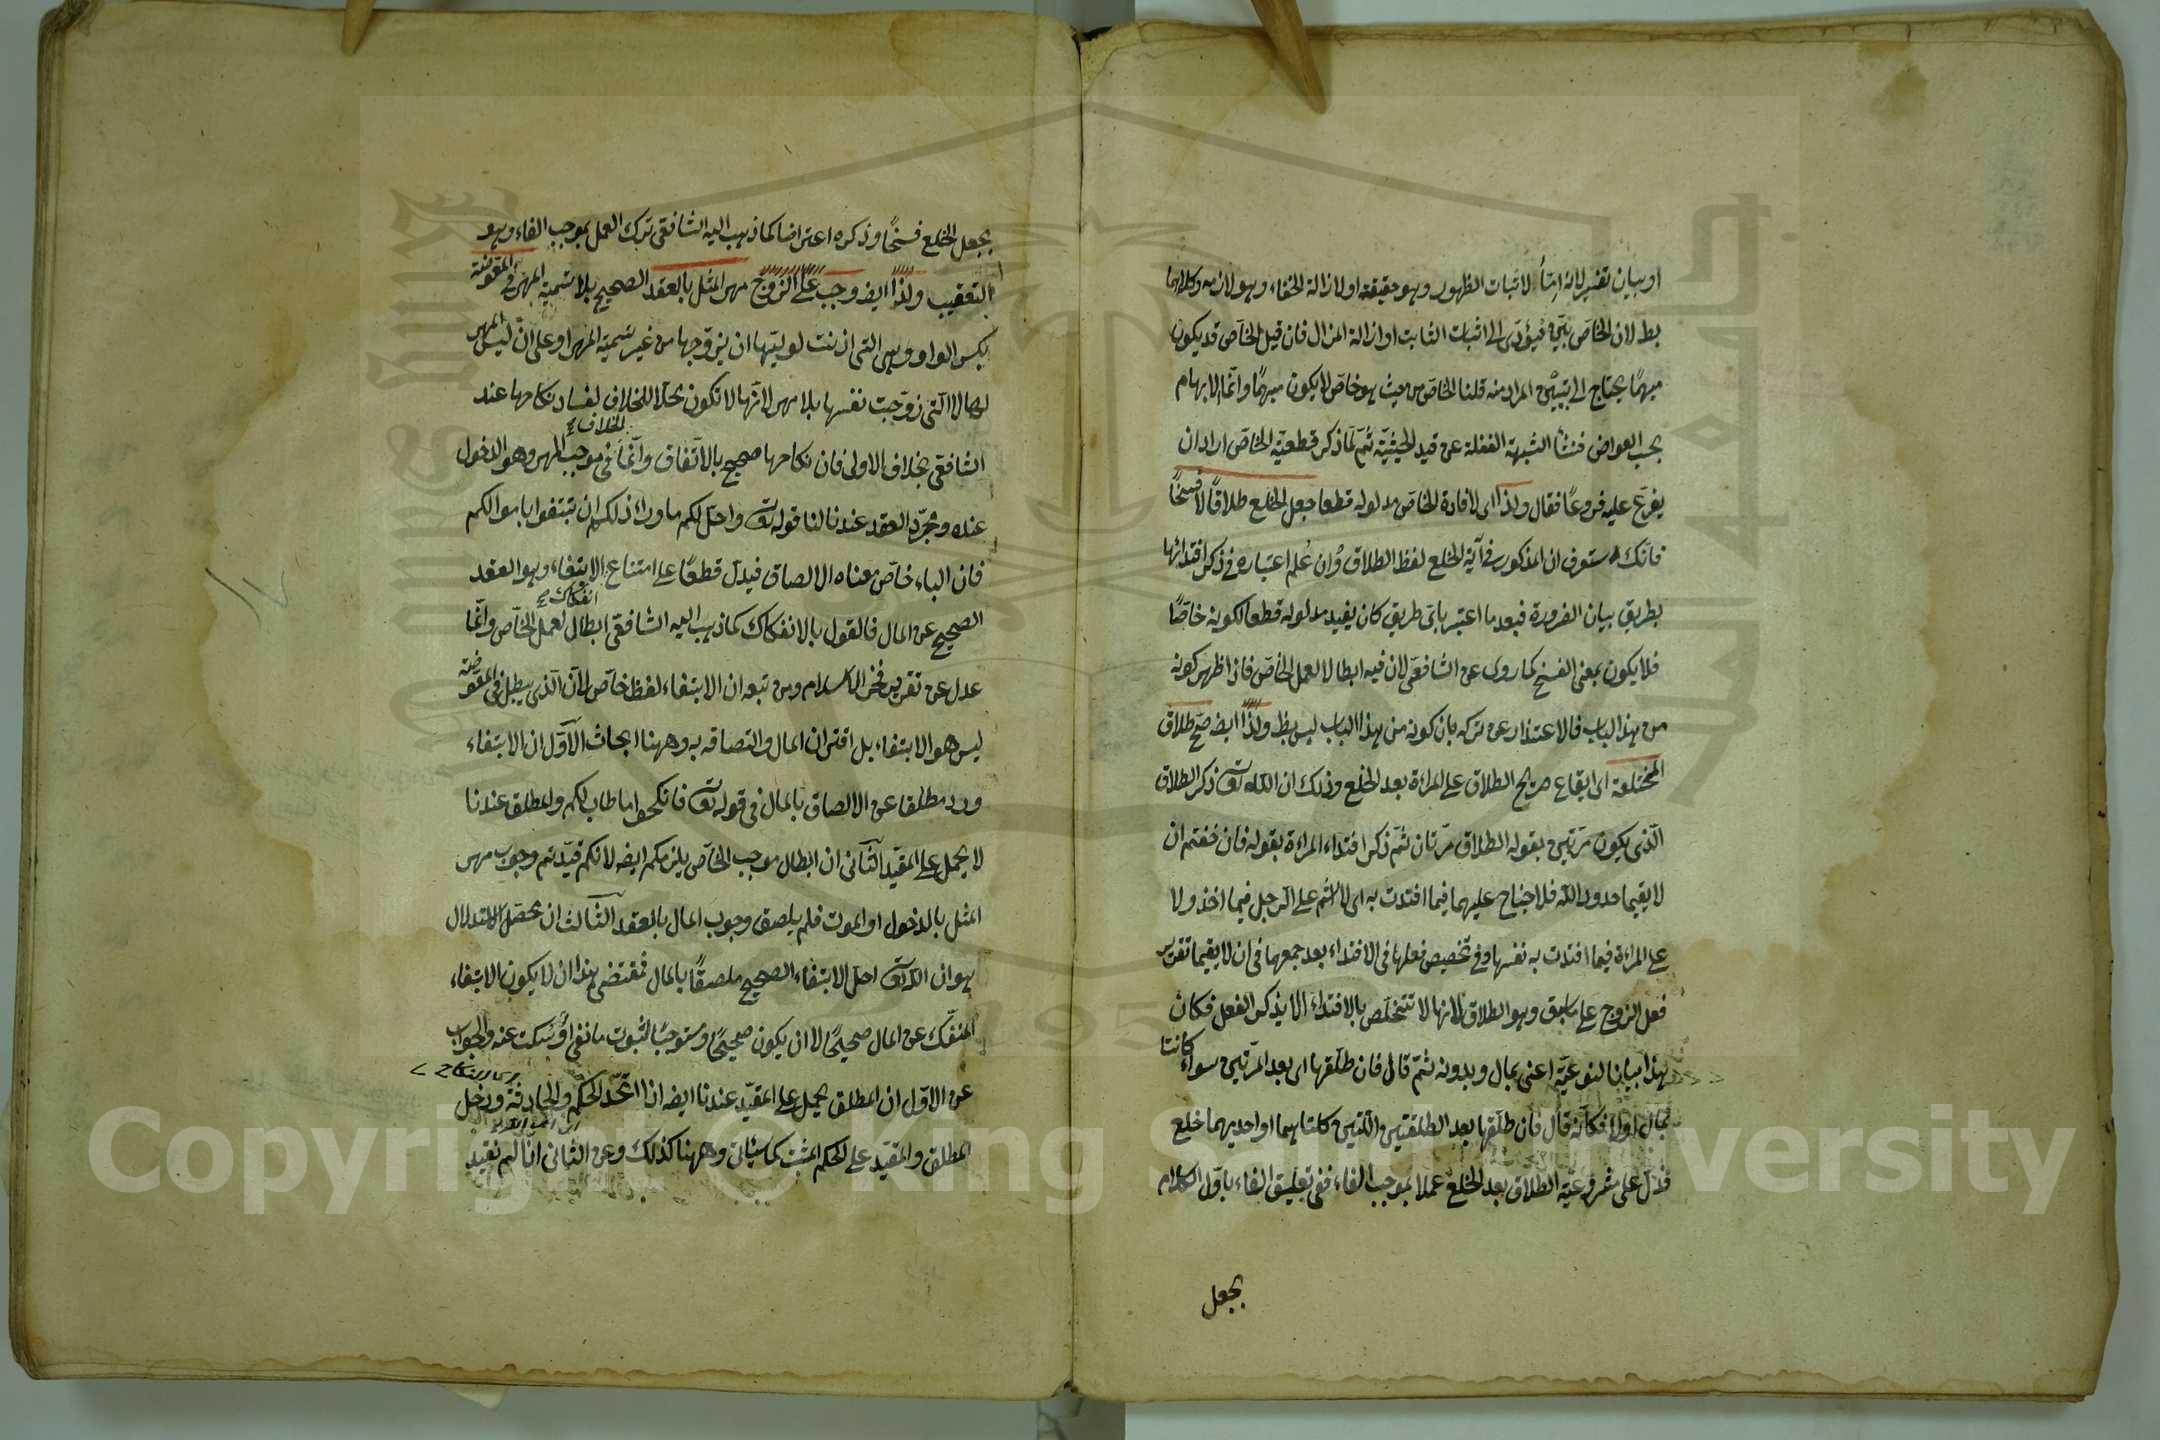 او بيان تفسير لانه امّا لاثبات الظهور وهو حقيقته او لازالة الخفاء وهو لازمه وكلاهما
بط لان الخاصّ بيّن فيؤدى الى اثبات الثابت او ازالة المزال فان قيل الخاصّ قد يكون
مبهمًا يحتاج الى تبيين المراد منه قلنا الخاصّ من حيث هو خاصّ لا يكون مبهمًا وانّما الابهام
بحسب العوارض فمنشأ الشبهة الغفلة عن قيد الحيثيّة ثمّ لمّا ذكر قطعيّة الخاصّ اراد ان
يفرّع عليه فروعًا فقال ولذا اى لافادة الخاصّ مدلوله قطعا جعل الخلع طلاقًا لا فسخًا
فانّك ستعرف ان المذكور فى آية الخلع لفظ الطلاق وان علم اعتباره فى ذكر افتدائها
بطريق بيان الضرورة فبعد ما اعتبر باىّ طريق كان يفيد مدلوله قطعا لكونه خاصّا
فلا يكون بمعنى الفسخ كما روى عن الشافعى لان فيه ابطالا لعمل الخاصّ فاذا ظهر كونه
من هذا الباب فالاعتذار عن تركه بان كونه من هذا الباب ليس بظ ولذا ايض صحّ طلاق
المختلعة اى ايقاع صريح الطلاق على المراءة بعد الخلع وذلك ان الله تع ذكر الطلاق
الّذى يكون مرّتين بقوله الطلاق مرّتان ثمّ ذكر افتداء المراءة بقوله فان خفتم ان
لا يقيما حدود الله فلا جناح عليهما فيما افتدت به اى لا اثم على الرجل فيما اخذ ولا
على المراءة فيما افتدت به نفسها وفى تخصيص فعلها فى الافتداء بعد جمعهما فى ان لا يقيما تقرير
فعل الزوج على ما سبق وهو الطلاق لانها لا تتخلّص بالافتداء الا بذكر الفعل فكان
هذا بيانا لنوعيّه اعنى بمال وبدونه ثمّ قال فان طلّقها اى بعد المرّتين سواء كانتا
بمال او لا فكأنّه قال فان طلّقها بعد الطلقتين اللتين كلتاهما او احديهما خلع
فدلّ على مشروعيّة الطلاق بعد الخلع عملا بموجب الفاء ففى تعليق الفاء باوّل الكلام
بجعل
بجعل الخلع فسخًا وذكره اعتراضا كما ذهب اليه الشافعى ترك العمل بموجب الفاء وهو
التعقيب ولذا ايض وجب على الزوج مهر المثل بالعقد الصحيح بلا تسمية المهر فى المفوّضة
بكسر الواو وهى التى اذنت لوليّها ان يزوّجها من غير تسمية المهر او على ان ليس المهر
لها لا الّتى زوّجت نفسها بلا مهر لانّها لا تكون محلّا للخلاف لفساد نكاحها عند
الخلاف
الشافعى بخلاف الاولى فان نكاحها صحيح بالاتّفاق وانّما فى موجب المهر وهو الدخول
عنده ومجرّد العقد عندنا لنا قوله تع واحلّ لكم ما وراء ذلكم ان تبتغوا باموالكم
فان الباء خاصّ معناه الالصاق فيدلّ قطعًا على امتناع الابتغاء وهو العقد
انفكاك
الصحيح عن المال فالقول بالانفكاك كما ذهب اليه الشافعى ابطال لعمل الخاصّ وانّما
عدل عن تقرير فخر الاسلام ومن تبعه ان الابتغاء لفظ خاصّ لان الّذى يبطل فى المفوّضة
ليس هو الابتغاء بل اقتران المال والتصاقه به وههنا ابحاث الاوّل ان الابتغاء
ورد مطلقا عن الالصاق بالمال فى قوله تع فانكحوا ما طاب لكم والمطلق عندنا
لا يحمل على المقيّد الثانى ان ابطال موجب الخاصّ يلزمكم ايضه لانكم قيّدتم وجوب مهر
المثل بالدخول او الموت فلم يلصق وجوب المال بالعقد الثالث ان محصّل الاستدلال
هو ان الله تع احلّ الابتغاء الصحيح ملصقًا بالمال فمقتضى هذا ان لا يكون الابتغاء
المنفكّ عن المال صحيحًا لا ان يكون صحيحًا ومستوجبًا لثبوت ما نفى او سكت عنه والجواب
عن الاوّل ان المطلق يحمل على المقيّد عندنا ايضه اذا اتّحد الحكم والحادثة ودخل
المطلق والمقيّد على الحكم المثبت كما سيأتى وههنا كذلك وعن الثانى انّا لم نقيّد
Copyright © King Saud University